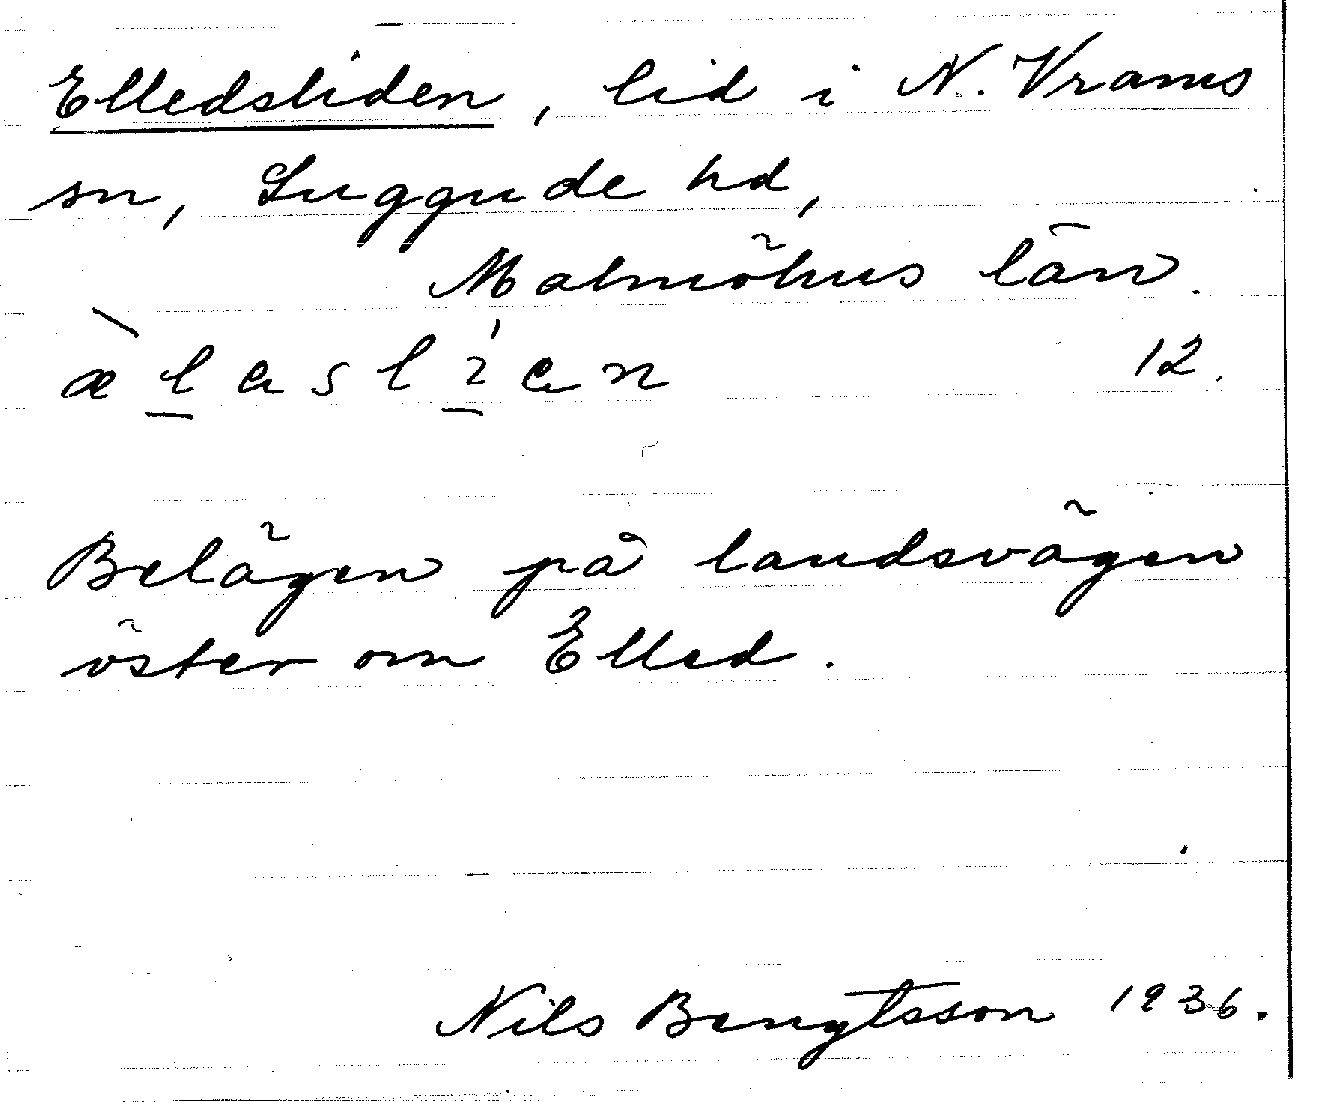 Elledsliden, lid i N. Vrams
sn, Luggude hd,
Malmöhus län.
æ̀l̲aslí̲an 12.
Belägen på landsvägen
öster om Elled.
Nils Bengtsson 1936.